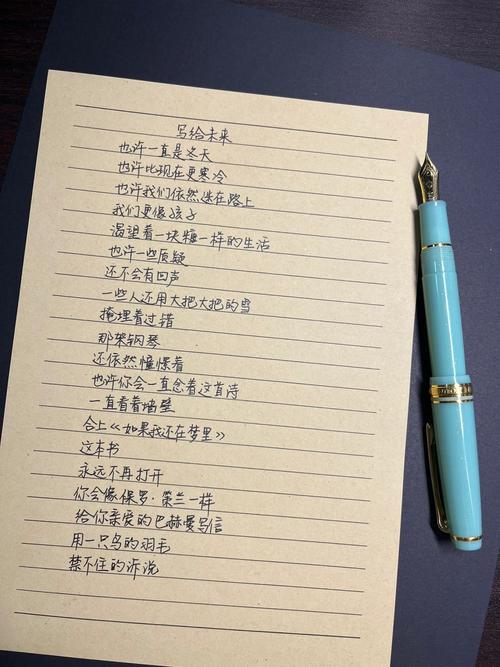 写给未来
也许一直是冬天
也许比现在更寒冷
也许我们依然迷在路上
我们更像孩子
渴望着一块糖一样的生活
也许一些质疑
还不会有回声
一些人还用大把大把的雪
掩埋着过错
那架钢琴
还依然憧憬着
也许你会一直念着这首诗
一直看着墙壁
合上《如果我还在梦里》
这本书
永远不再打开
你会像保罗·策兰一样
给你亲爱的巴赫曼写信
用一只鸟的羽毛
禁不住的诉说